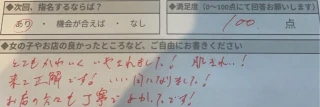 ◆次回、指名するならば？ ◆満足度（0～100点にて回答お願いします）
あり ・ 機会が合えば ・ なし 100. 点
◆女の子やお店の良かったところなど、ご自由にお書きください
とてもかわいく いやされました！ 肌きれい！
来て正解です！ いい
お店の方々も丁寧で よかったです！